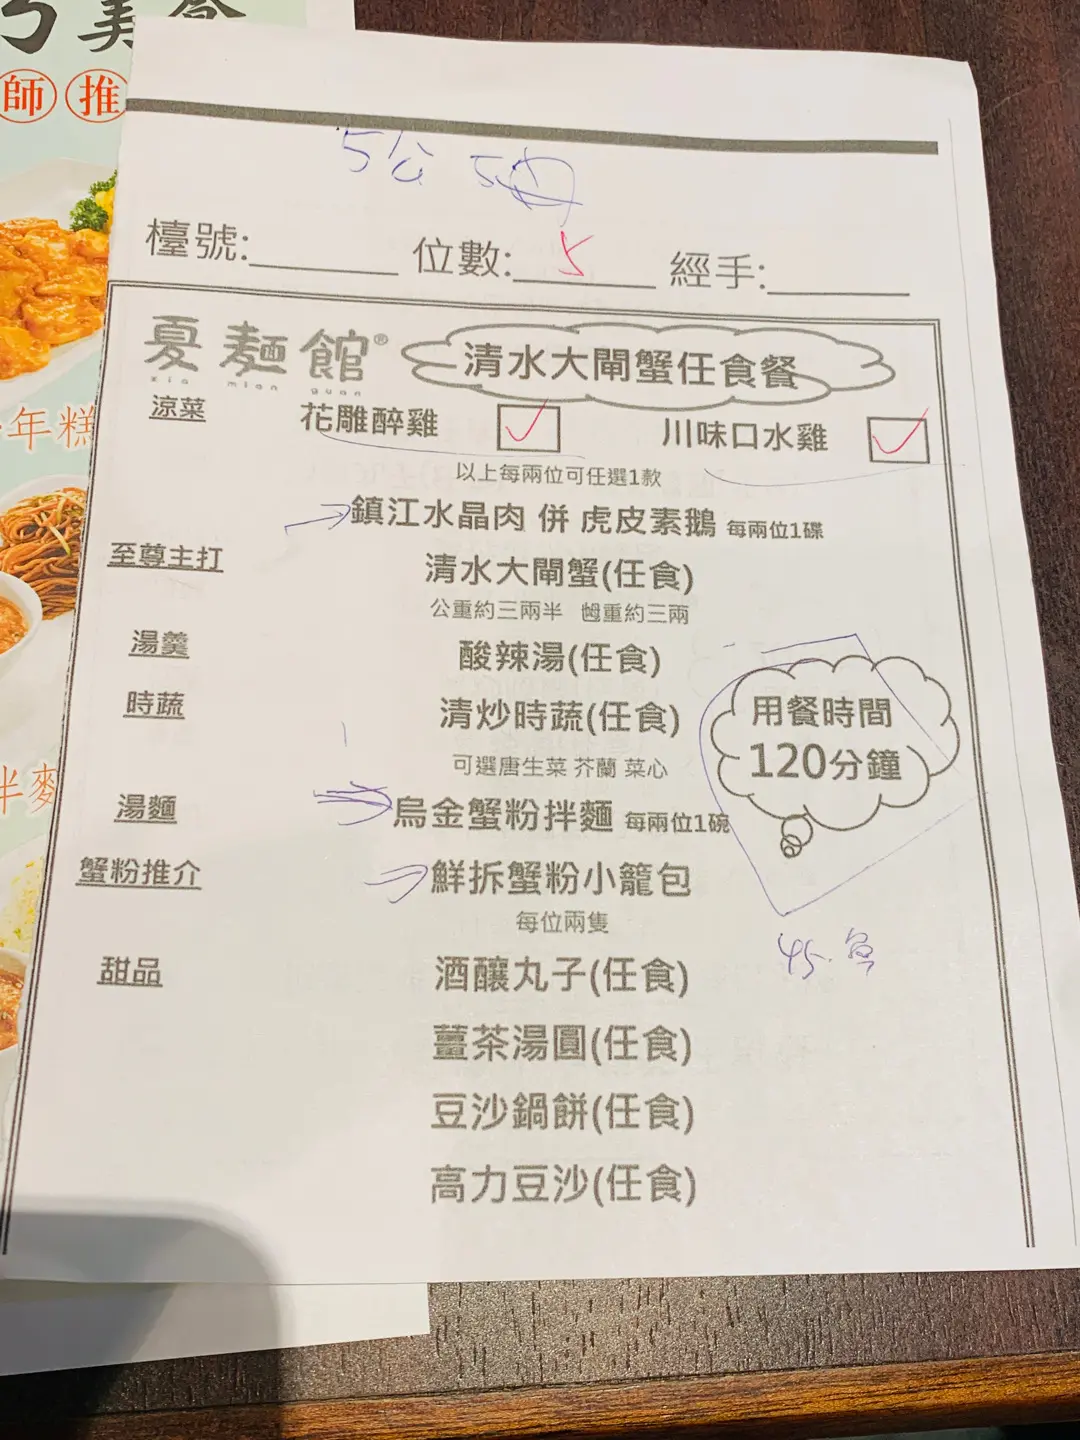 美食
師推
年糕
半麥
5公 5
檯號:
位數: 5
經手:
夏麵館®
xia mian guan
清水大閘蟹任食餐
涼菜
花雕醉雞 ✓
川味口水雞 ✓
以上每兩位可任選1款
鎮江水晶肉 併 虎皮素鵝 每兩位1碟
至尊主打
清水大閘蟹(任食)
公重約三兩半 乸重約三兩
湯羹
酸辣湯(任食)
時蔬
清炒時蔬(任食)
可選唐生菜 芥蘭 菜心
用餐時間
120分鐘
湯麵
烏金蟹粉拌麵 每兩位1碗
蟹粉推介
鮮拆蟹粉小籠包
每位兩隻
45.
甜品
酒釀丸子(任食)
薑茶湯圓(任食)
豆沙鍋餅(任食)
高力豆沙(任食)